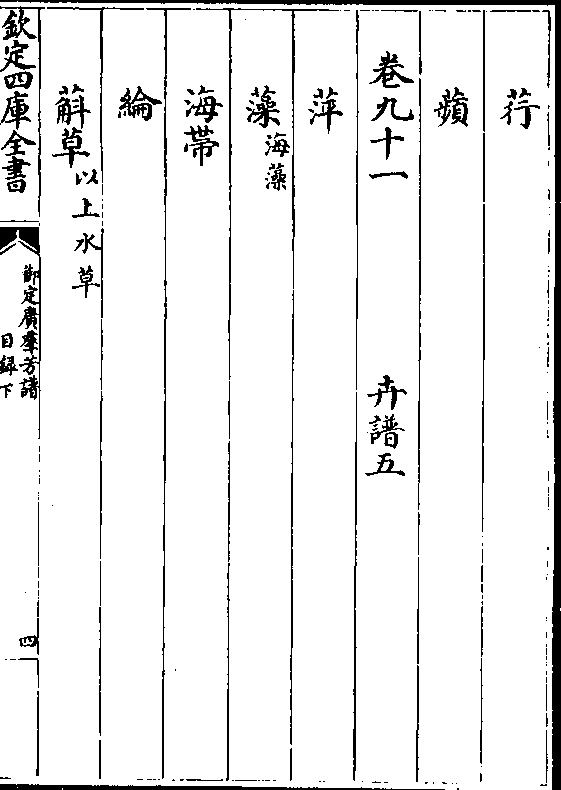 荇
蘋
卷九十一 卉譜五
萍
藻海藻
海帶
綸
䔖草以上水草
欽定四庫全書
御定廣羣芳譜
目錄下
四